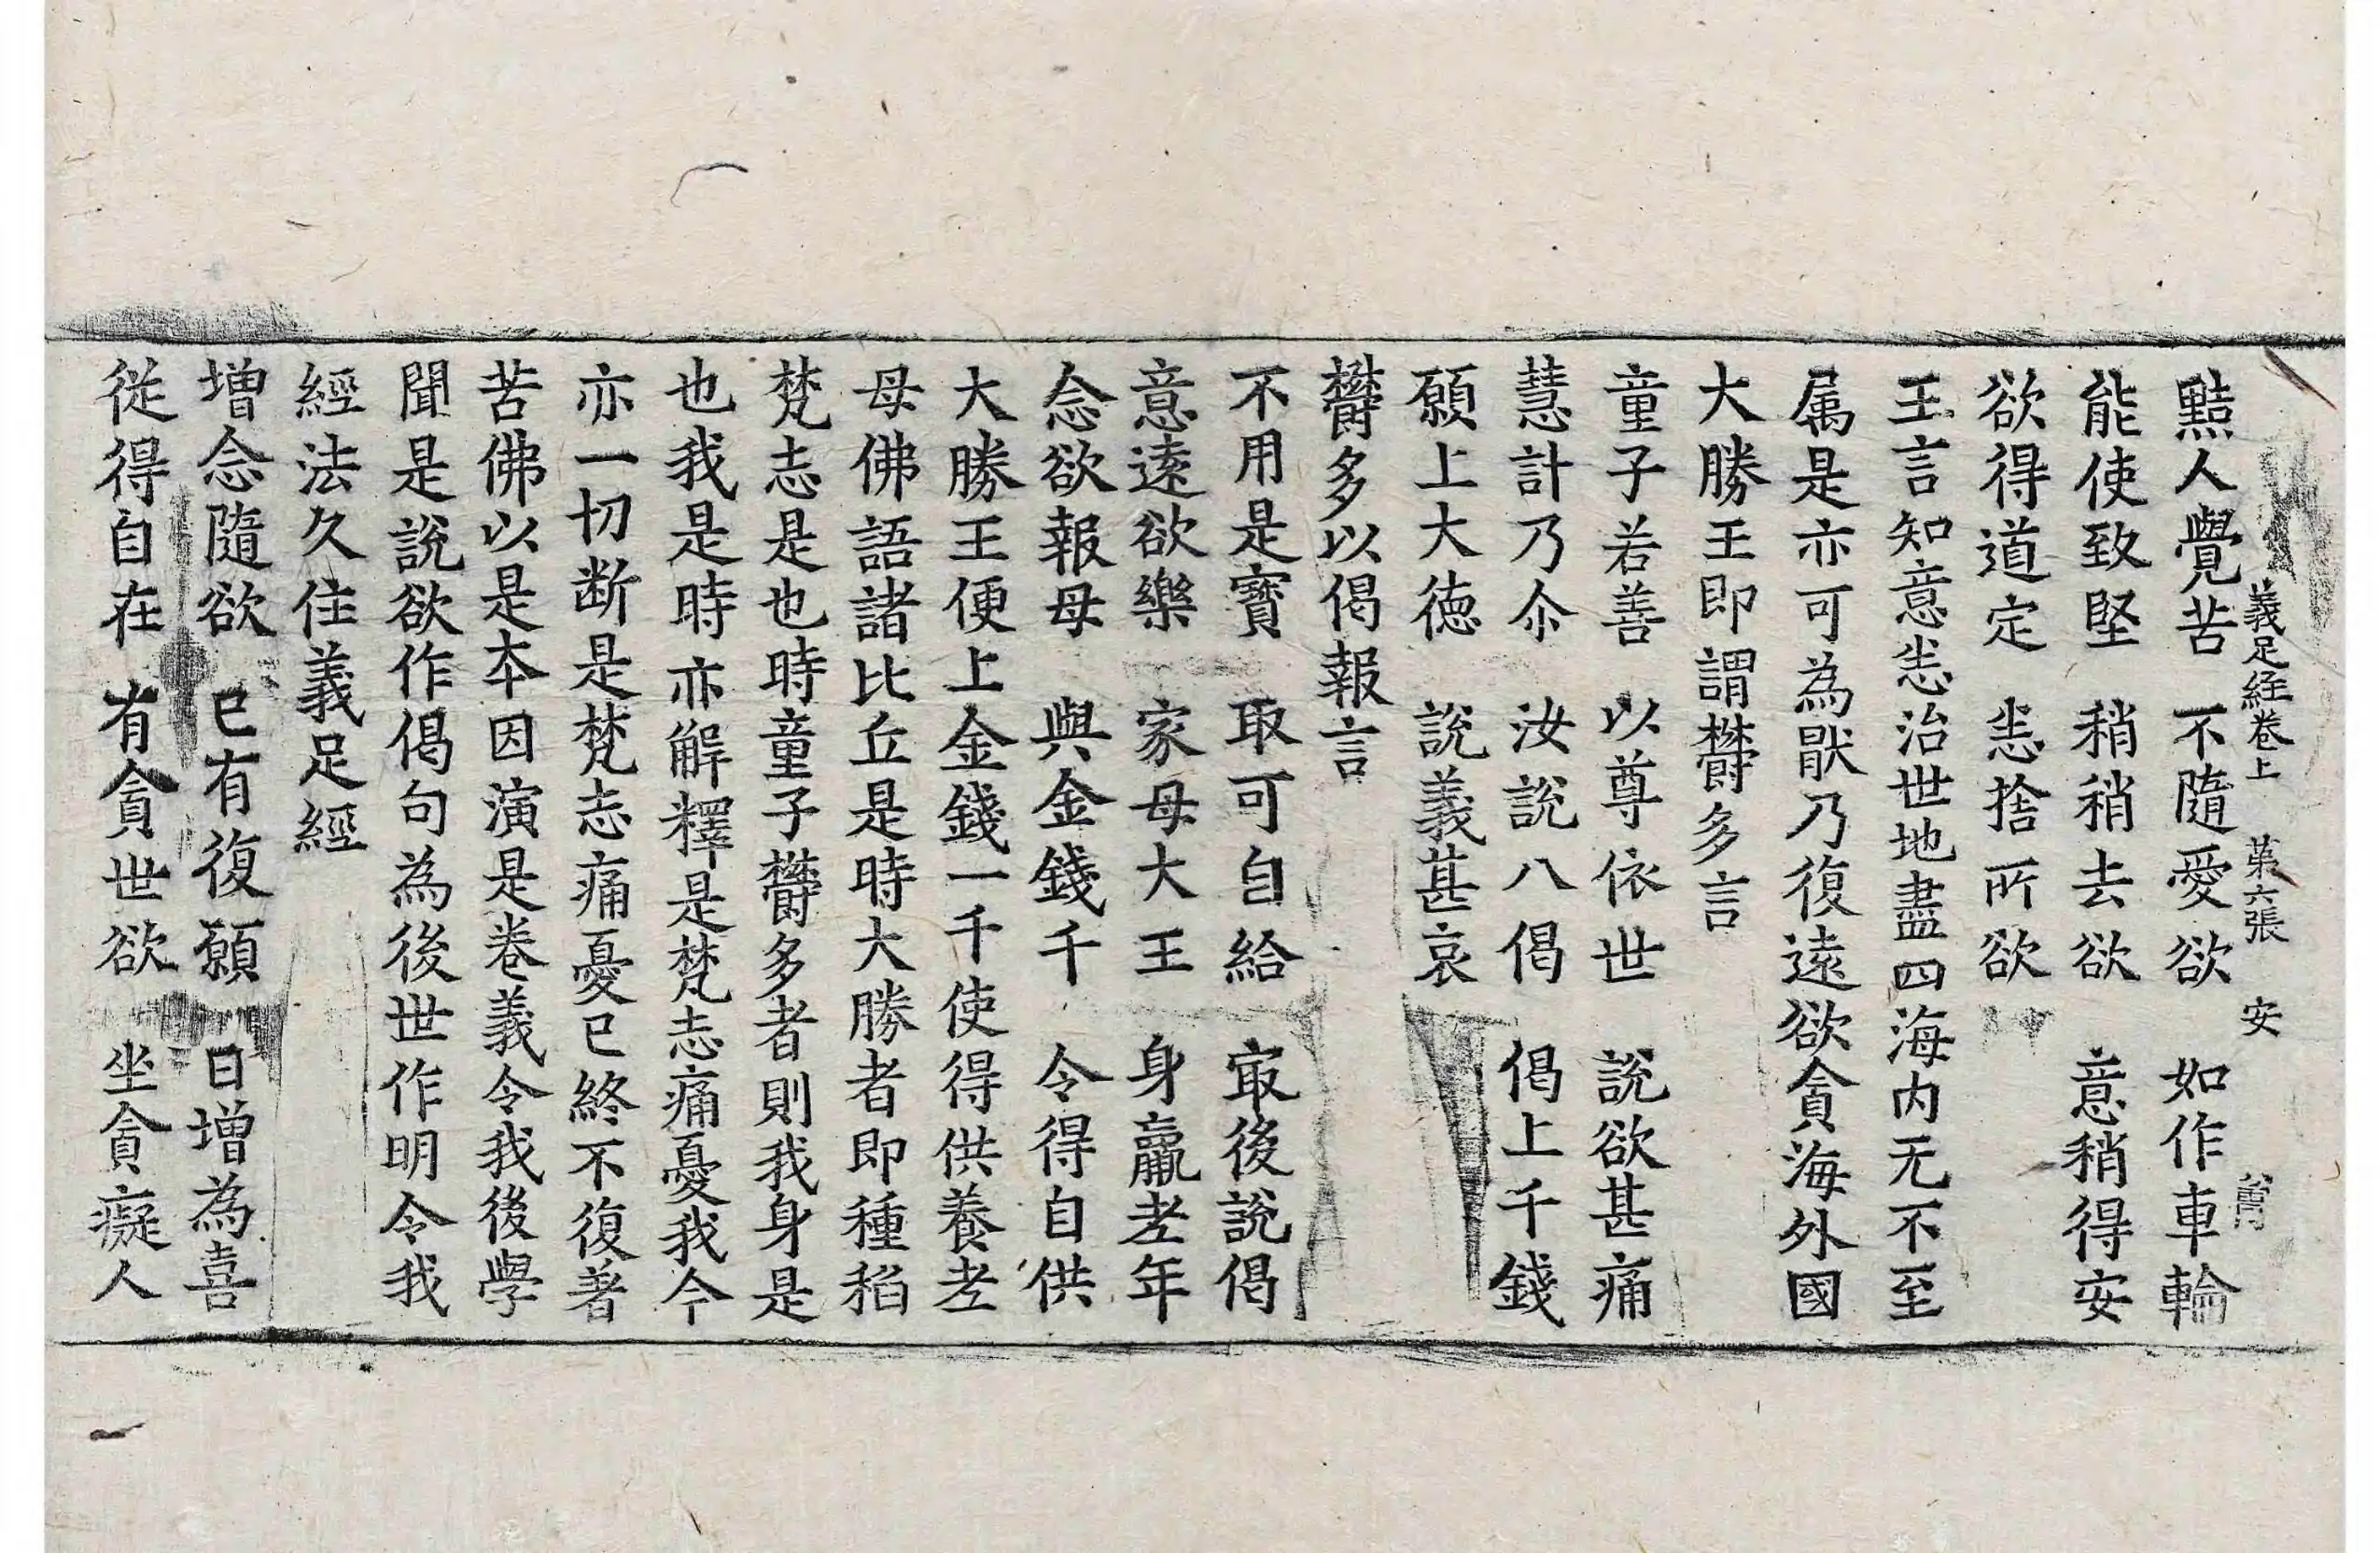 義足経卷上　第六張　安
黠人覺苦　不隨愛欲　如作車輪
能使致堅　稍稍去欲　意稍得安
欲得道定　恙捨所欲
王言知意恙治世地盡四海内无不至
属是亦可為猒乃復遠欲貪海外國
大勝王即謂欝多言
童子若善　以尊依世　說欲甚痛
慧計乃尒　汝說八偈　偈上千錢
願上大德　說義甚哀
欝多以偈報言
不用是寶　取可自給　㝡後說偈
意遠欲樂　家母大王　身羸老年
念欲報母　與金錢千　令得自供
大勝王便上金錢一千使得供養老
母佛語諸比丘是時大勝者即種稻
梵志是也時童子欝多者則我身是
也我是時亦解釋是梵志痛憂我今
亦一切断是梵志痛憂已終不復著
苦佛以是本因演是卷義令我後學
聞是說欲作偈句為後世作明令我
經法久住義足經
增念隨欲　已有復願　日增為喜
從得自在　有貪世欲　坐貪癡人